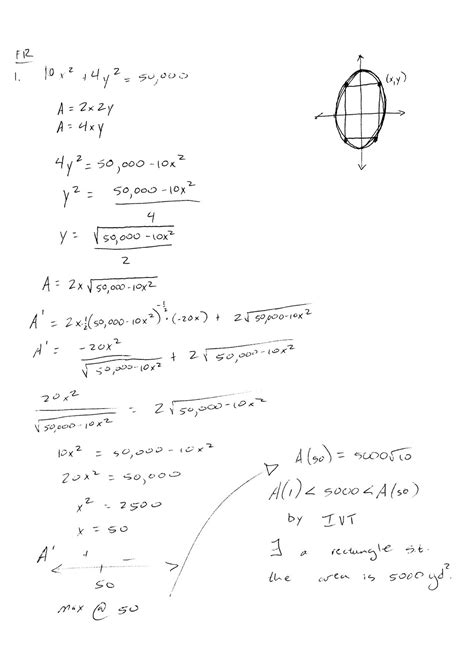 FR
1. 10x² + 4y² = 50,000
(x,y)
A = 2x2y
A = 4xy
4y² = 50,000 - 10x²
y² = (50,000 - 10x²)/4
y = √(50,000 - 10x²)/2
A = 2x√(50,000 - 10x²)
A' = 2x·½(50,000 - 10x²)^(-½)·(-20x) + 2√(50,000 - 10x²)
A' = -20x²/√(50,000 - 10x²) + 2√(50,000 - 10x²)
20x²/√(50,000 - 10x²) = 2√(50,000 - 10x²)
10x² = 50,000 - 10x²
20x² = 50,000
x² = 2500
x = 50
A' + -
50
max @ 50
A(50) = 5000√10
A(1) < 5000 < A(50)
by IVT
∃ a rectangle s.t.
the area is 5000 yd².